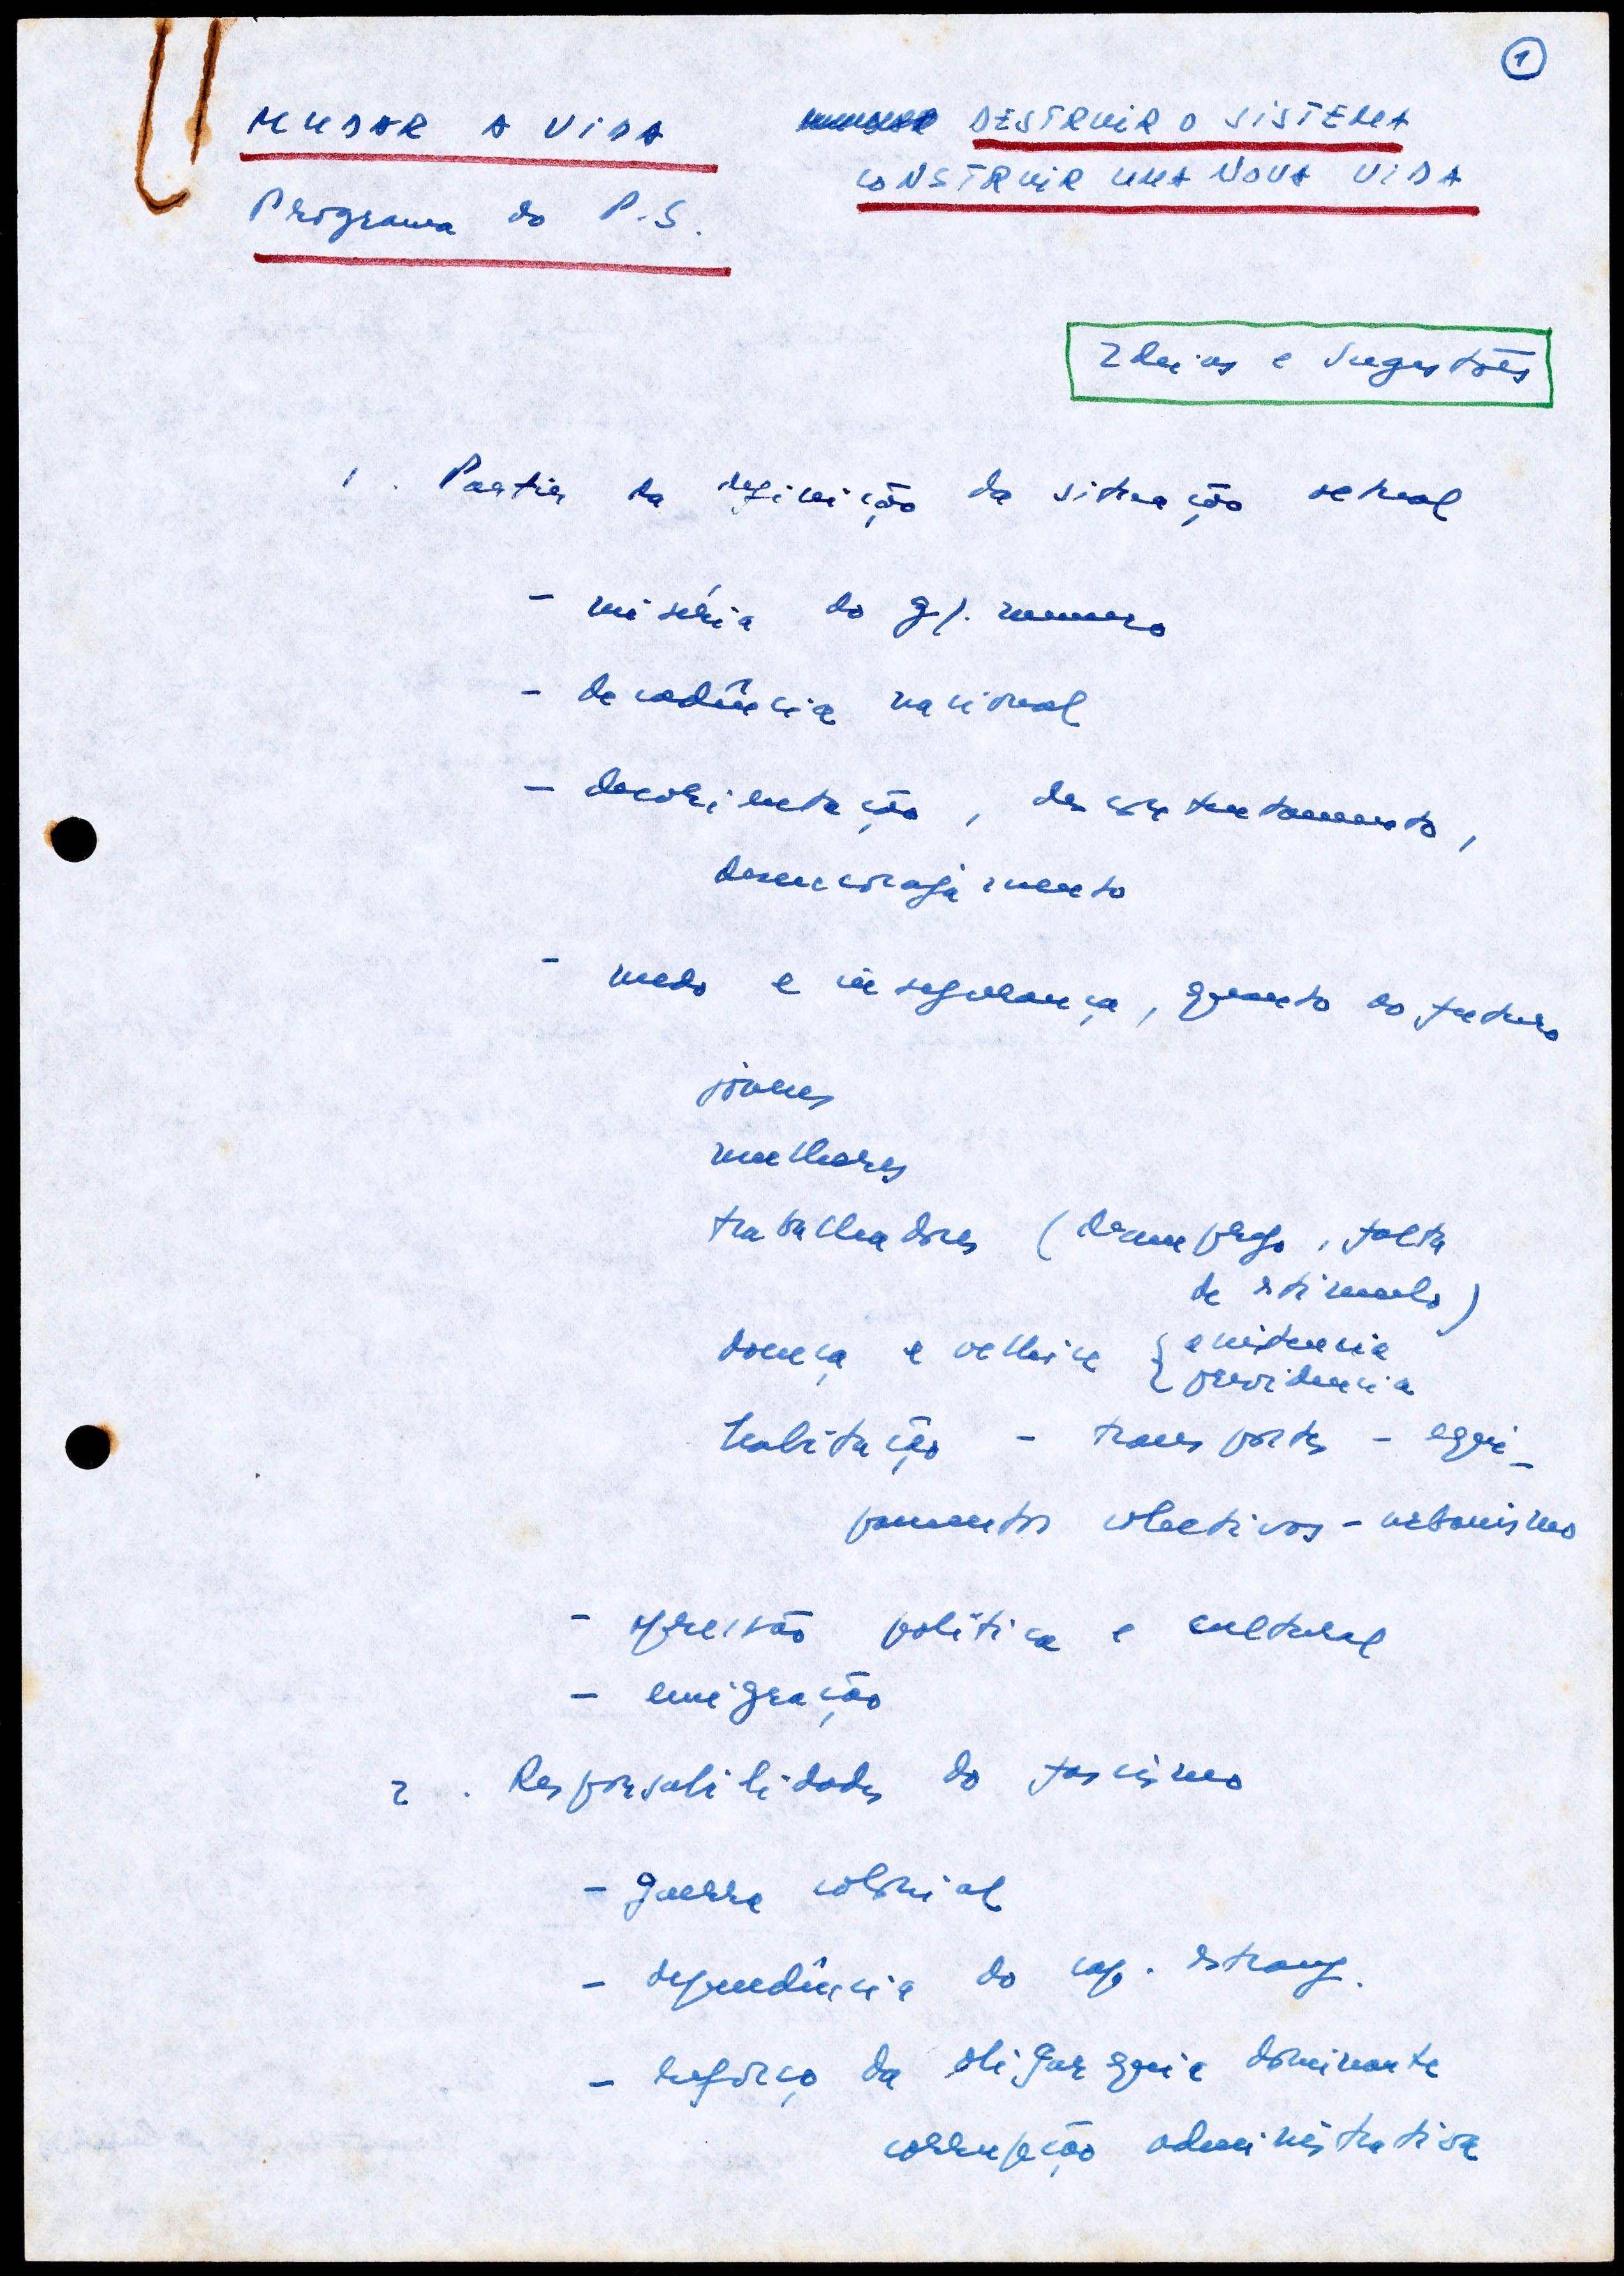 1
MUDAR A VIDA
Programa do P.S.
DESTRUIR O SISTEMA
CONSTRUIR UMA NOVA VIDA
Ideias e sugestões
1. Partir da definição da situação actual
- miséria do gr. número
- decadência nacional
- desorientação, descontentamento,
desencorajamento
- medo e insegurança, quanto ao futuro
jovens
mulheres
trabalhadores (desemprego, falta
de estímulo)
doença e velhice { assistencia
previdencia
habitação - transportes - equi-
pamentos colectivos - urbanismo
- opressão política e cultural
- emigração
2. Responsabilidades do fascismo
- guerra colonial
- dependência do cap. estrang.
- reforço da oligarquia dominante
corrupção administrativa